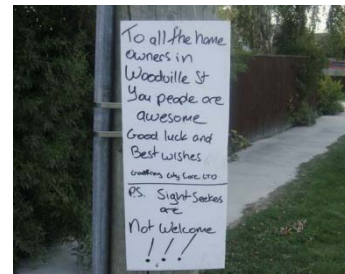 To all the home
owners in
Woodville St
You people are
awesome
Good luck and
Best wishes
City Care LTD
P.S. Sight-Seekers
are
Not Welcome
!!!